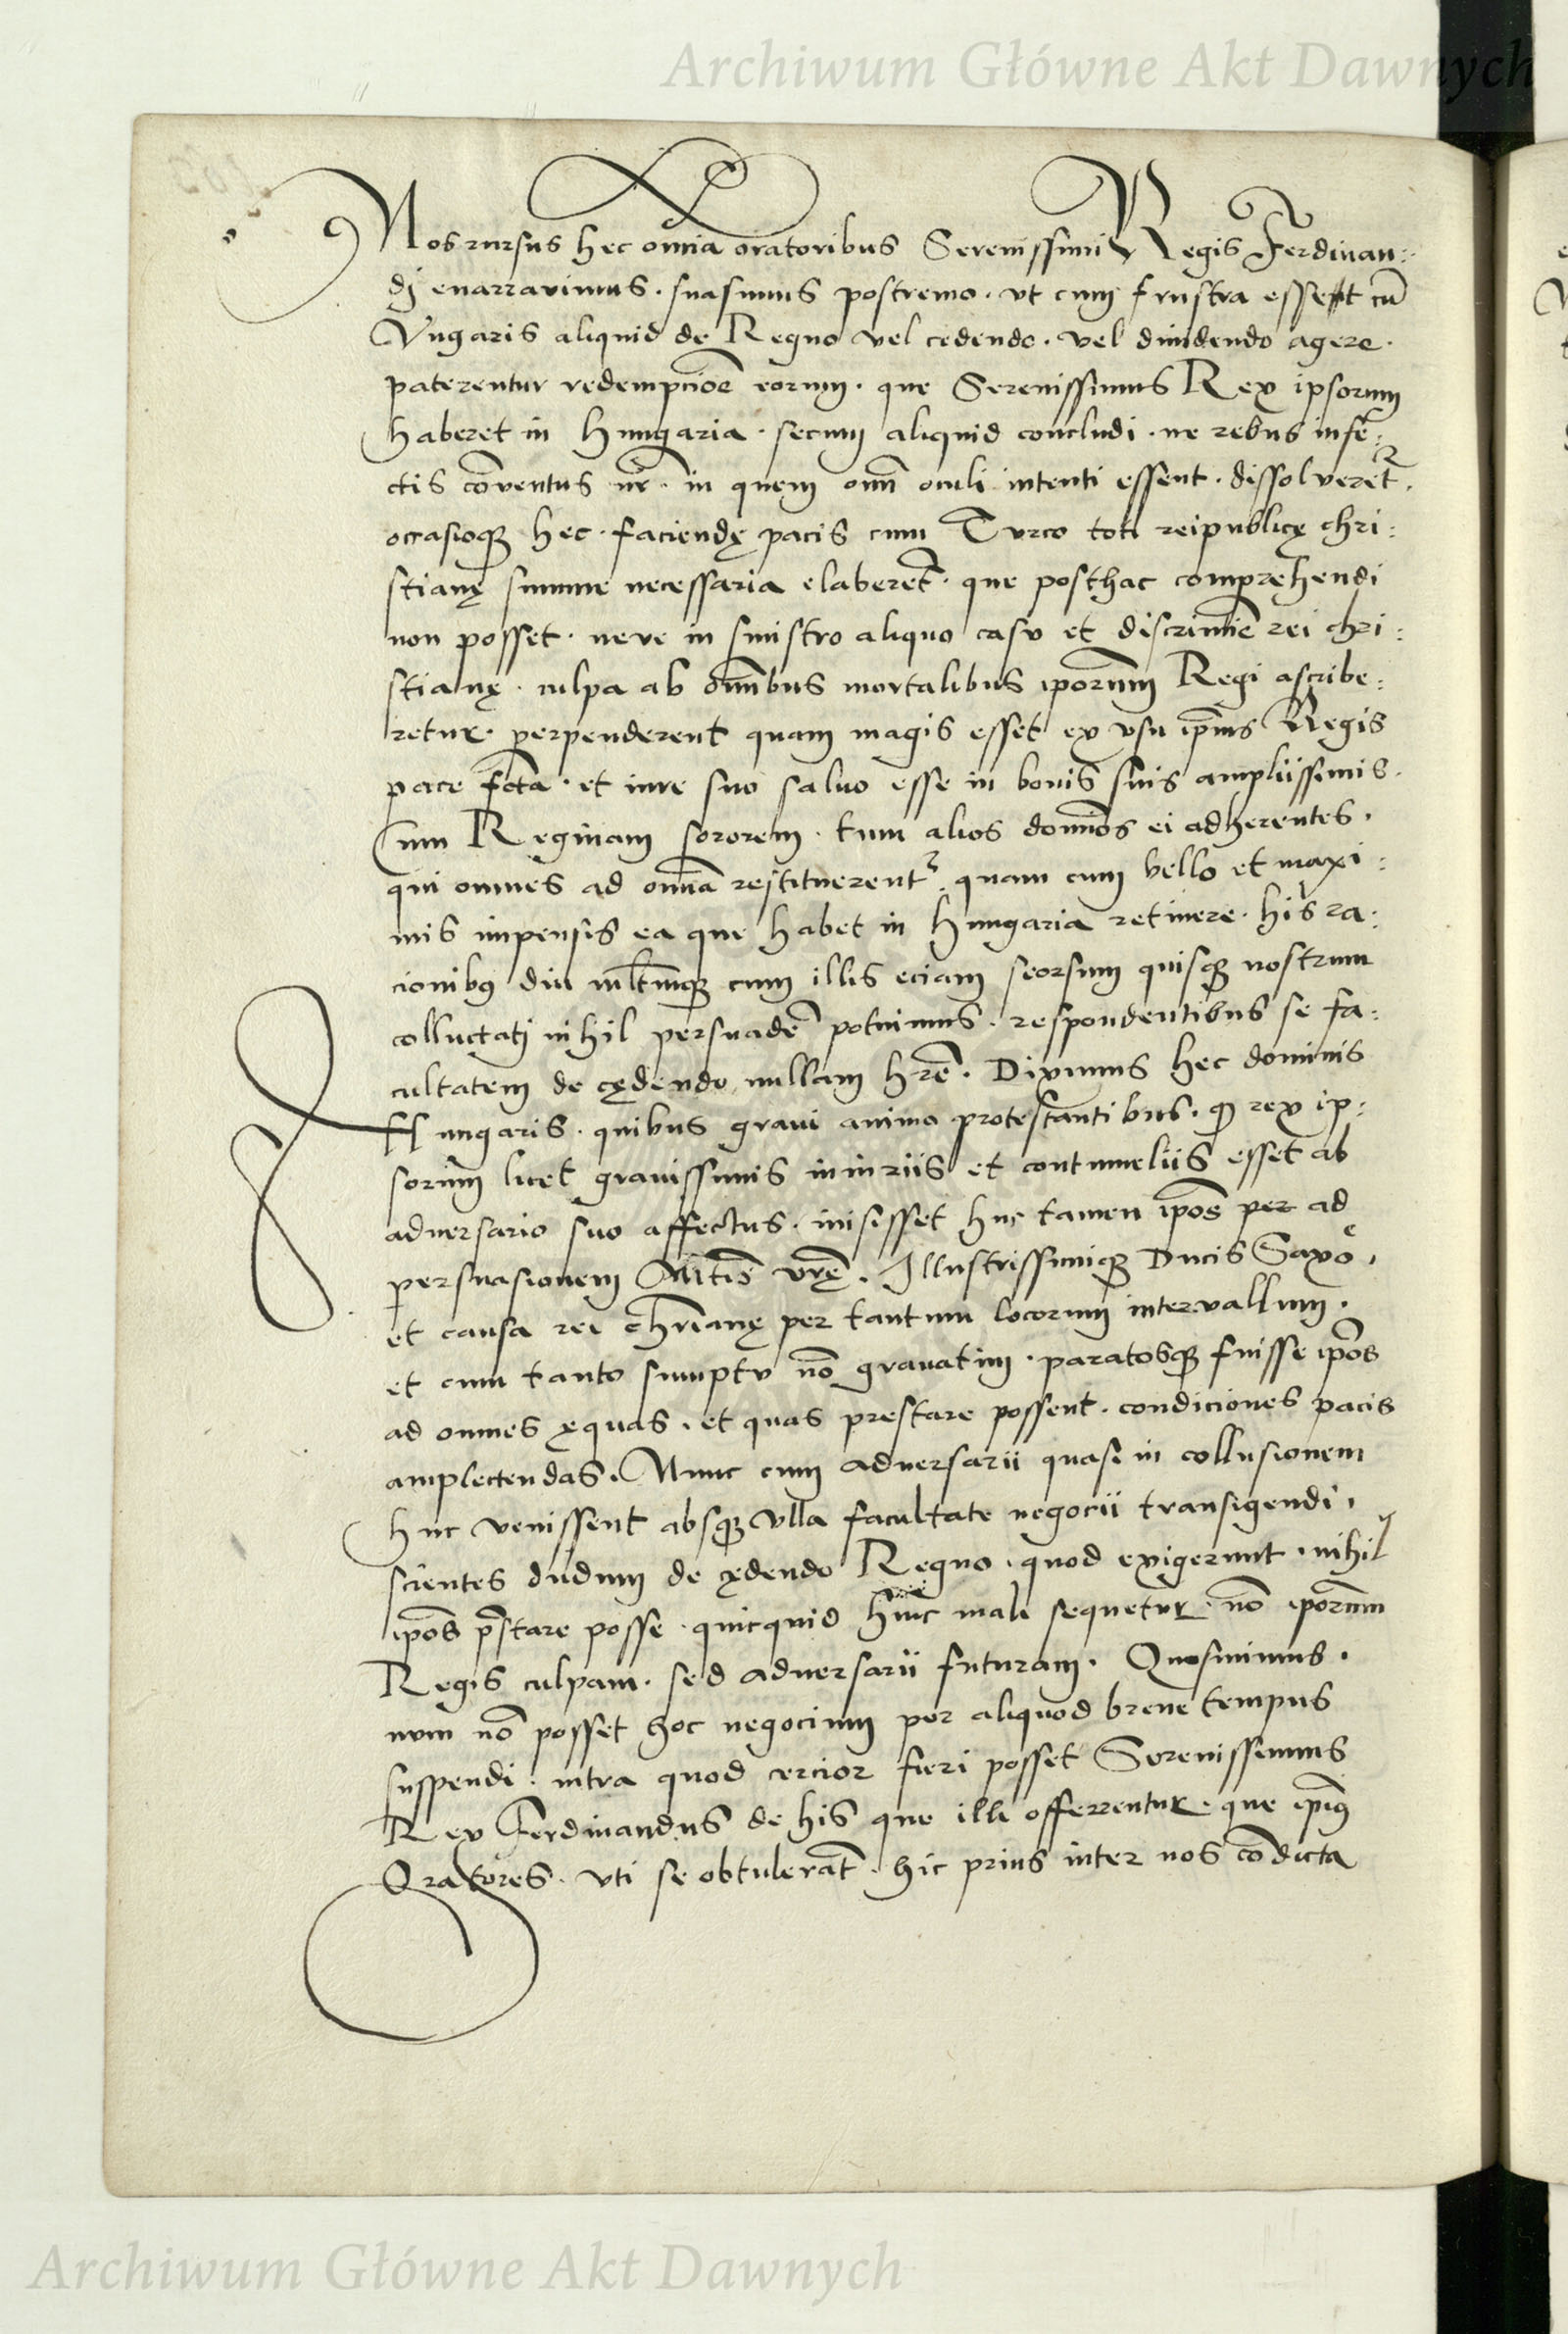 Archiwum Główne Akt Dawnych
Nos rursus hec omnia oratoribus Serenissimi Regis Ferdinan:
dj enarravimus. suasimus postremo. vt cum frustra esset cū
Vngaris aliquid de Regno vel cedendo. vel diuidendo agere.
paterentur redempcioē eorum. que Serenissimus Rex ipsorum
haberet in Hungaria. secum aliquid concludi. ne rebus infe:
ctis cōventus nr̄. in quem om̄ oculi intenti essent. dissolveret̄.
occasioqꝫ hec. faciendę pacis cum Turco toti reipublicę chri:
stianę summe necessaria elaberet̄. que posthac comprehendi
non posset. neve in sinistro aliquo casu et discrimīe rei chri:
stianę. culpa ab om̄ibus mortalibus ip̄orum Regi ascribe:
retur. perpenderent quam magis esset ex vsu ip̄ius Regis
pace fc̄ta. et iure suo saluo esse in bonis suis ampliissimis.
cum Reginam sororem. tum alios domīos ei adherentes.
qui omnes ad om̄ia restituerent̄. quam cum bello et maxi:
mis impensis ea que habet in Hungaria retinere. his ra:
cionibꝯ diu ml̄tumqꝫ cum illis eciam seorsum quisqꝫ nostrum
colluctatj nihil persuadē potuimus. respondentibus se fa:
cultatem de cędendo nullam hr̄e. Diximus hec dominis
Hungaris. quibus graui animo protestantibus. ꝙ rex ip:
sorum licet grauissimis iniuriis et contumeliis esset ab
aduersario suo affectus. misisset huc tamen ip̄os per ad
persuasionem Mtīs vr̄ę. Illustrissimiqꝫ Ducis Saxoē.
et causa rei chr̄ianę per tantum locorum intervallum.
et cum tanto sumptu nō grauatim. paratosqꝫ fuisse ip̄os
ad omnes ęquas. et quas prestare possent. condiciones pacis
amplectendas. Nunc cum aduersarii quasi in collusionem
huc venissent absqꝫ vlla facultate negocii transigendi.
scientes dudum de cędendo Regno. quod exigerunt. nihil
ip̄os p̄stare posse. quicquid hinc mali sequetur. nō ip̄orum
Regis culpam. sed aduersarii futuram. Quesiuimus.
num nō posset hoc negocium per aliquod breue tempus
suspendi. intra quod cercior fieri posset Serenissimus
Rex Ferdinandus de his que illi offerrentur. que ip̄iꝯ
Oratores. vti se obtulerāt. hic prius inter nos cōdicta
Archiwum Główne Akt Dawnych